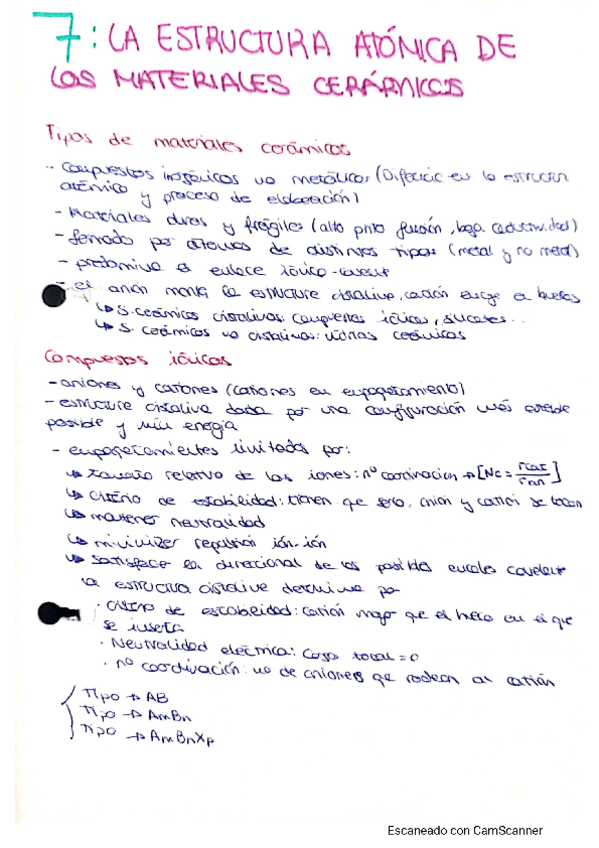 7: LA ESTRUCTURA ATÓMICA DE
LOS MATERIALES CERÁMICOS
Tipos de materiales cerámicos
- Compuestos inorgánicos no metálicos (Diferencia en la estructura
atómica y proceso de elaboración)
- Materiales duros y frágiles (alto pnto fusión, baja conductividad)
- formado por átomos de distintos tipos (metal y no metal)
- predomina el enlace iónico-covalente
- el anión monta la estructura cristalina, catión elige huecos
↳ S. cerámicos cristalinos: compuestos iónicos, silicatos...
↳ S. cerámicos no cristalinos: vidrios cerámicos
Compuestos iónicos
- aniones y cationes (cationes en empaquetamiento)
- estructura cristalina dada por una configuración más estable
posible y mín energía
- empaquetamientos limitados por:
↳ tamaño relativo de los iones: nº coordinación → [Nc = rcat/ran]
↳ criterio de estabilidad: tienen que anión y catión se tocan
↳ mantener neutralidad
↳ minimizar repulsión ión-ión
↳ satisfacer la direccional de los posibles enlaces covalente
la estructura cristalina determina por
· criterio de estabilidad: catión mayor que el hueco en el que
se inserta
· Neutralidad eléctrica: carga total = 0
· nº coordinación: no de aniones que rodean al catión
Tipo → AB
Tipo → AmBn
Tipo → AmBnXp
Escaneado con CamScanner